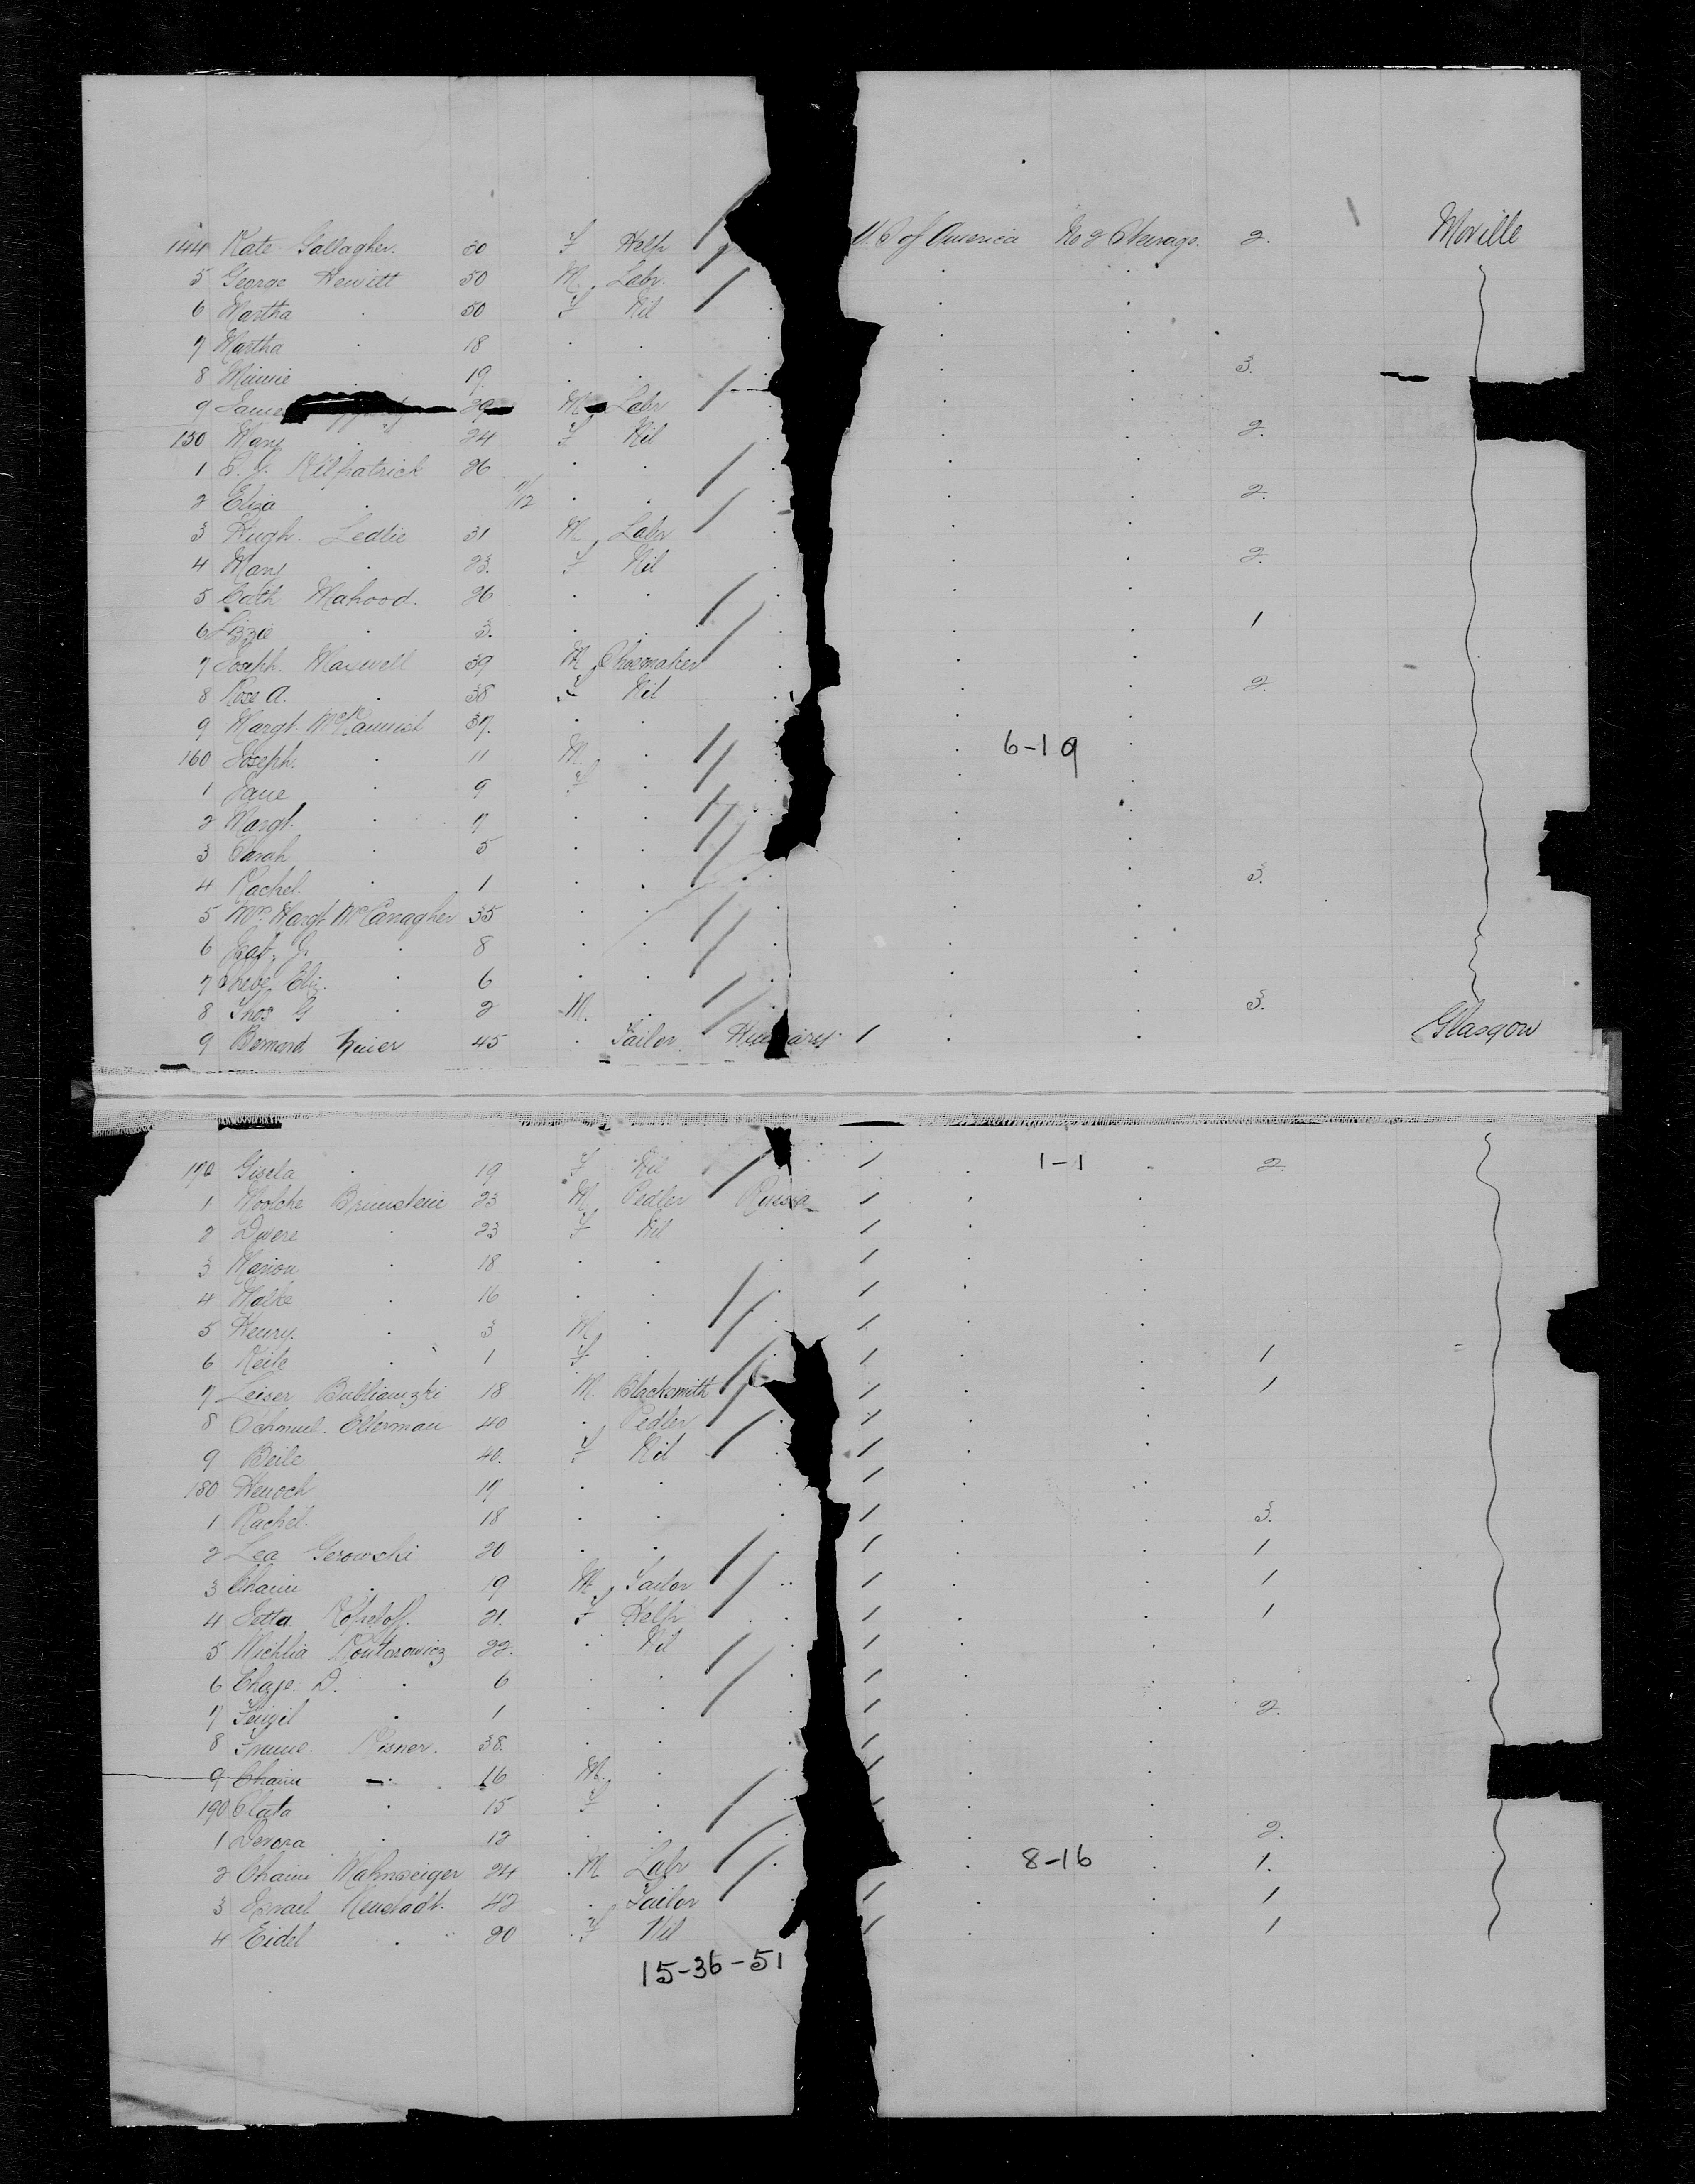 144 Kate Gallagher. 30 F Help U.S of America No 2 Steerage. 2. Moville
5 George Hewitt 50 M. Labr.
6 Martha . 50 F Nil
7 Martha . 18 . .
8 Minnie . 19 . . 3.
9 James 29 M Labr
150 Mary . 24 F Nil 2.
1 E. J. Kilpatrick 26 . .
2 Eliza . 11/12 . . 2.
3 Hugh. Ledlie 31 M Labr
4 Mary . 23. F Nil 2.
5 Cath Mahood. 26 . .
6 Lizzie . 3. . . 1
7 Joseph. Maxwell 39 M Shoemaker
8 Rose A. . 38 F Nil 2.
9 Margt. 37. . .
160 Joseph. . 11 M. . 6-19
1 Jane . 9 F .
2 Margt. . 7 . .
3 Sarah . 5 . .
4 Rachel. . 1 . . 3.
5 Mrs. Margt McCanagher 35 . .
6 G. . 8 . .
7 Eliz. . 6 . .
8 Thos G . 2 M. . 3.
9 Bernard 45 . Tailor Hungary 1 Glasgow
170 Gisela . 19 F Nil 1 1-1 2.
1 Woolche Brunstein 23 M Pedler Russia 1
2 Dwere . 23 F Nil 1
3 Marion . 18 . . 1
4 Malke . 16 . . 1
5 Henry. . 3 M . 1
6 Keile . 1 F . 1 1
7 Leiser 18 M. Blacksmith 1 1
8 Schmul. Ellerman 40 . Pedler 1
9 Beile 40. F Nil 1
180 Henoch 17 . . 1
1 Rachel. 18 . . 1 3.
2 Lea Gerowski 20 . . 1 1
3 Chaim . 19 M Tailor 1 1
4 Jetta Kopeloff. 21. F Help 1 1
5 Michlia Kontorowicz 22. . Nil 1
6 Chaje. D. . 6 . . 1
7 . 1 . . 1 2.
8 Risner. 38. . . 1
9 Chaim . 16 M. . 1
190 Slata . 15 F . 1
1 Devora . 12 . . 2.
2 Chaim 24 M Labr 8-16 1.
3 Israel Neustadt. 42 . Tailor 1 1
4 Eidel . 20 F Nil 1 1
15-36-51